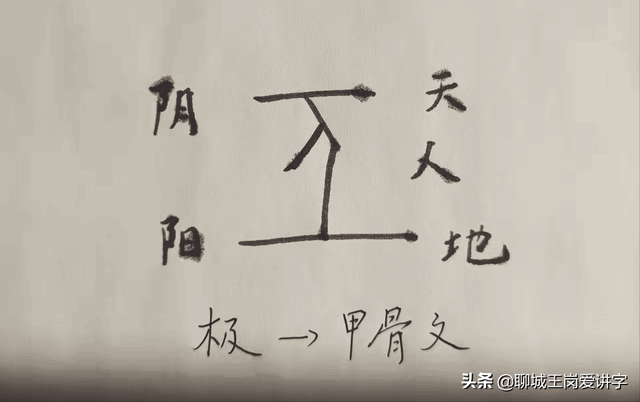 阴 天
人
阳 地
极→甲骨文
头条 @聊城王岗爱讲字